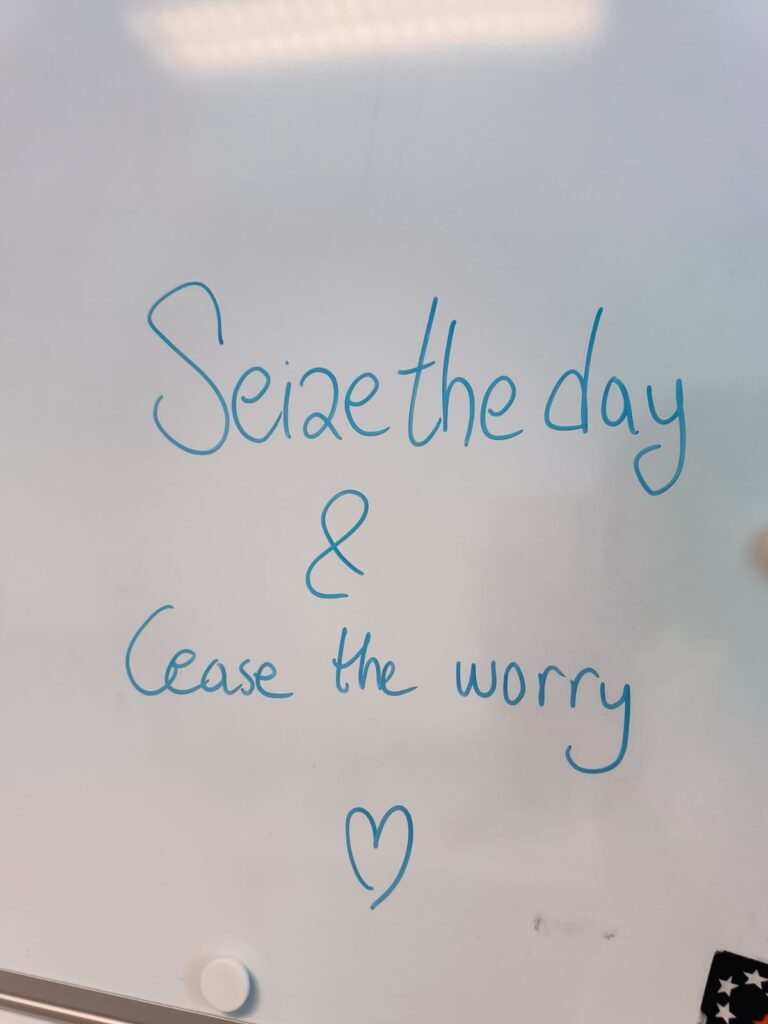 Seize the day
&
Cease the worry